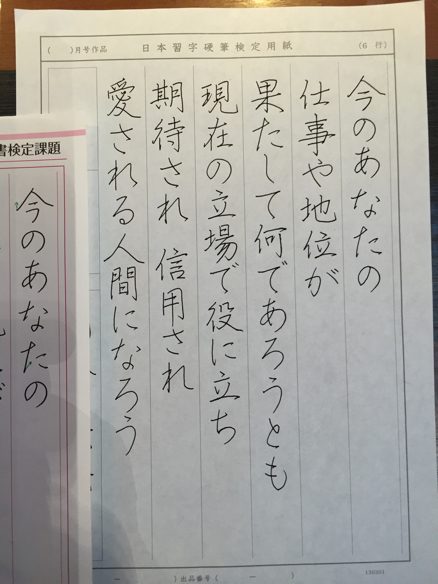 ( )月号作品 日本習字硬筆検定用紙 (6 行)
今のあなたの
仕事や地位が
果たして何であろうとも
現在の立場で役に立ち
期待され 信用され
愛される人間になろう
)出品番号( ー )
書検定課題
今のあなたの